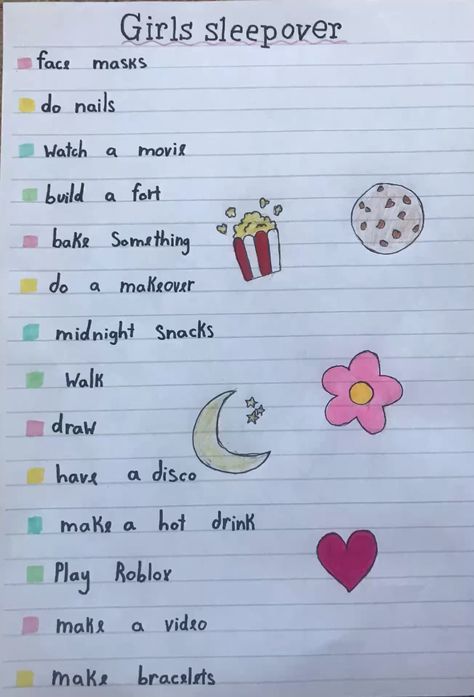 Girls sleepover
face masks
do nails
Watch a movie
build a fort
bake Something
do a makeover
midnight Snacks
Walk
draw
have a disco
make a hot drink
Play Roblox
make a video
make bracelets